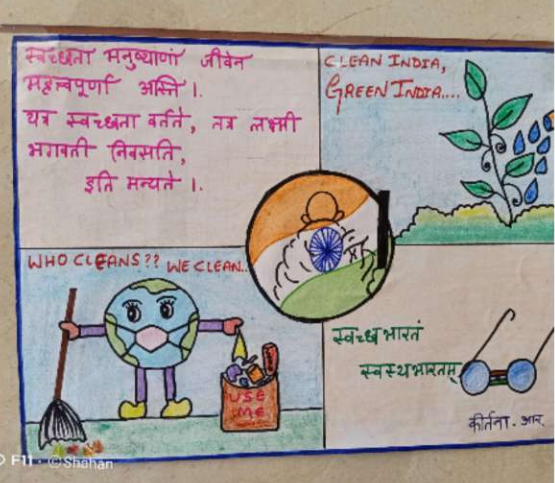 स्वच्छता मनुष्याणां जीवेन
महत्त्वपूर्णा अस्ति ।
यत्र स्वच्छता वर्तते, तत्र लक्ष्मी
भगवती निवसति,
इति मन्यते ।
CLEAN INDIA,
GREEN INDIA....
WHO CLEANS?? WE CLEAN..
USE
ME
स्वच्छ भारतं
स्वस्थ भारतम्
कीर्तना . आर.
F11 · © Shahan